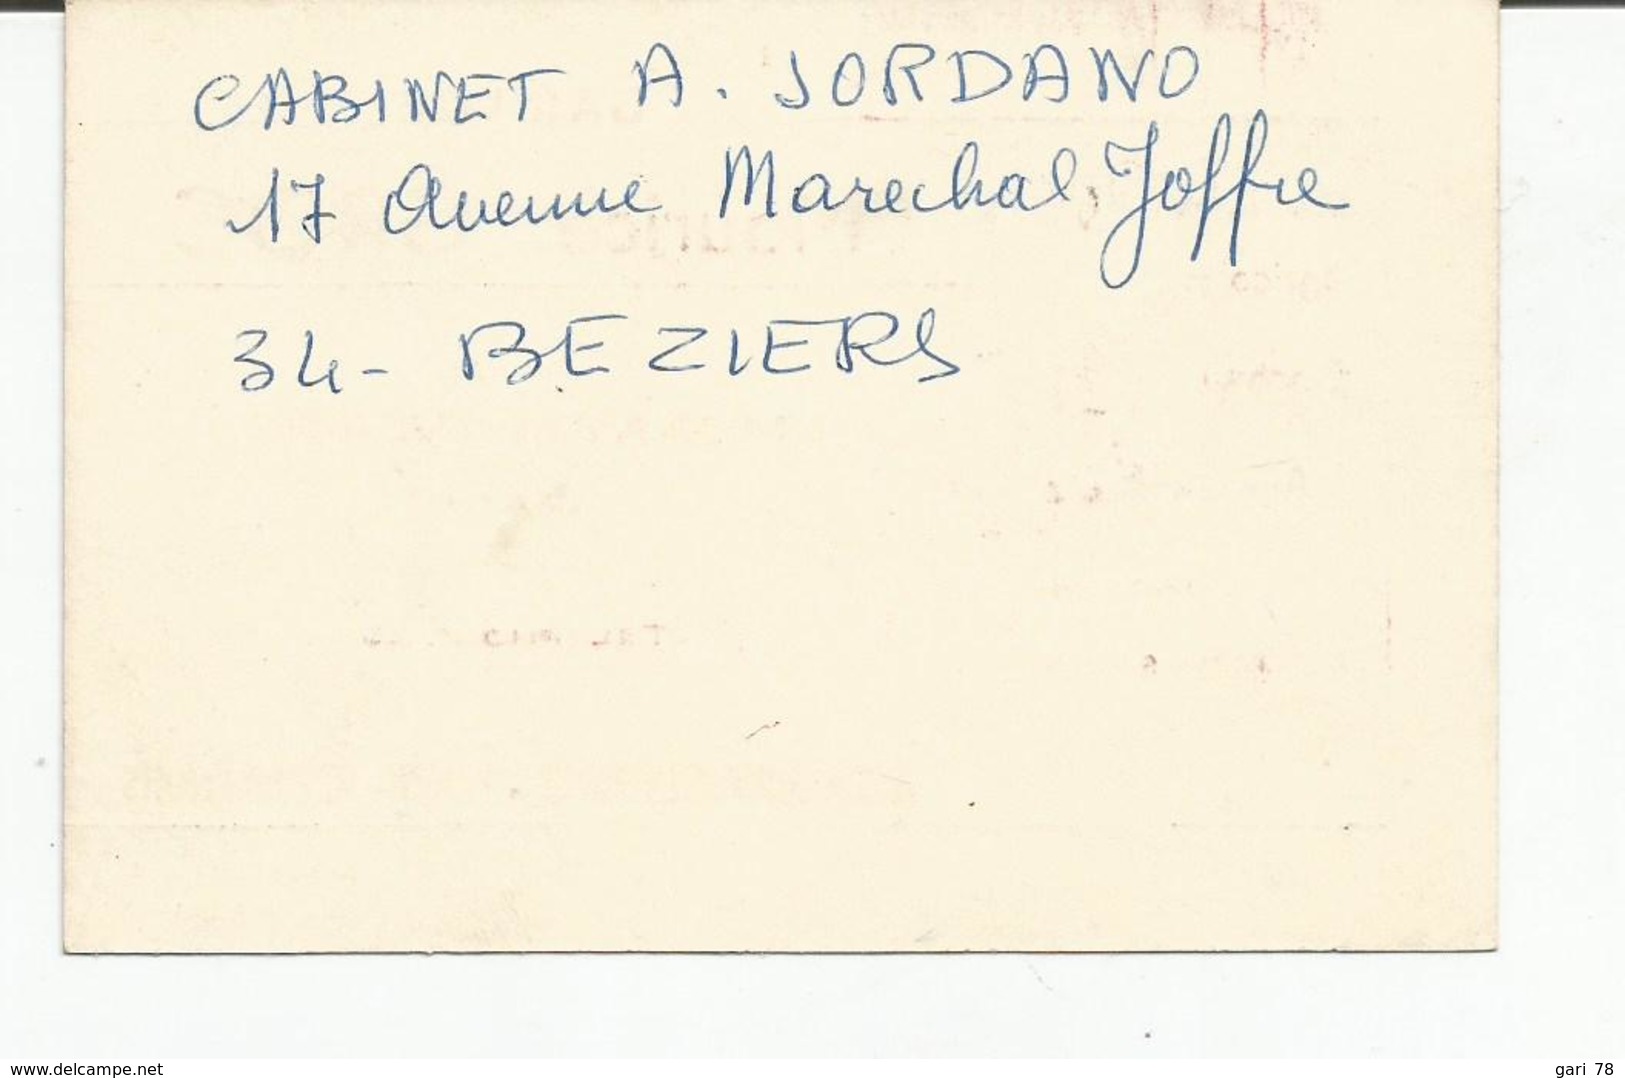 CABINET A. JORDANO
17 Avenue Marechal Joffre
34- BEZIERS
www.delcampe.net
gari 78